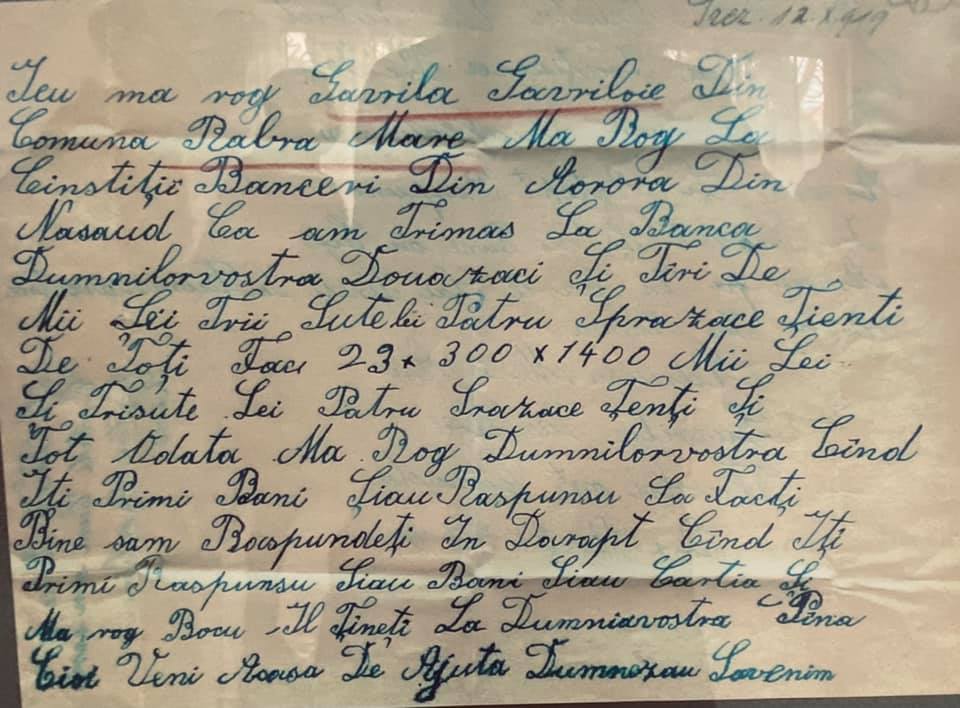 Prez. 12.X.919
Ieu ma rog Gavrila Gavriloie Din
Comuna Rabra Mare Ma Rog La
Cinstiții Banceri Din Aorora Din
Nasaud Ca am Trimas La Banca
Dumnilorvostra Douazaci Și Tîri De
Mii Lei Trii Sute lei Patru Sprazace Țienti
De Toți Fac 23 x 300 x 1400 Mii Lei
Și Trisute Lei Patru Srazace Țenți Și
Tot Odata Ma Rog Dumnilorvostra Cînd
Iti Primi Bani Siau Raspunsu La Facți
Bine sam Raspundeți In Darapt Cînd Iți
Primi Raspunsu Siau Bani Siau Cartia Și
Ma rog Bocu Il Țineți La Dumniavostra Pîna
Cioi Veni Acasa De Ajuta Dumnezau Savenim